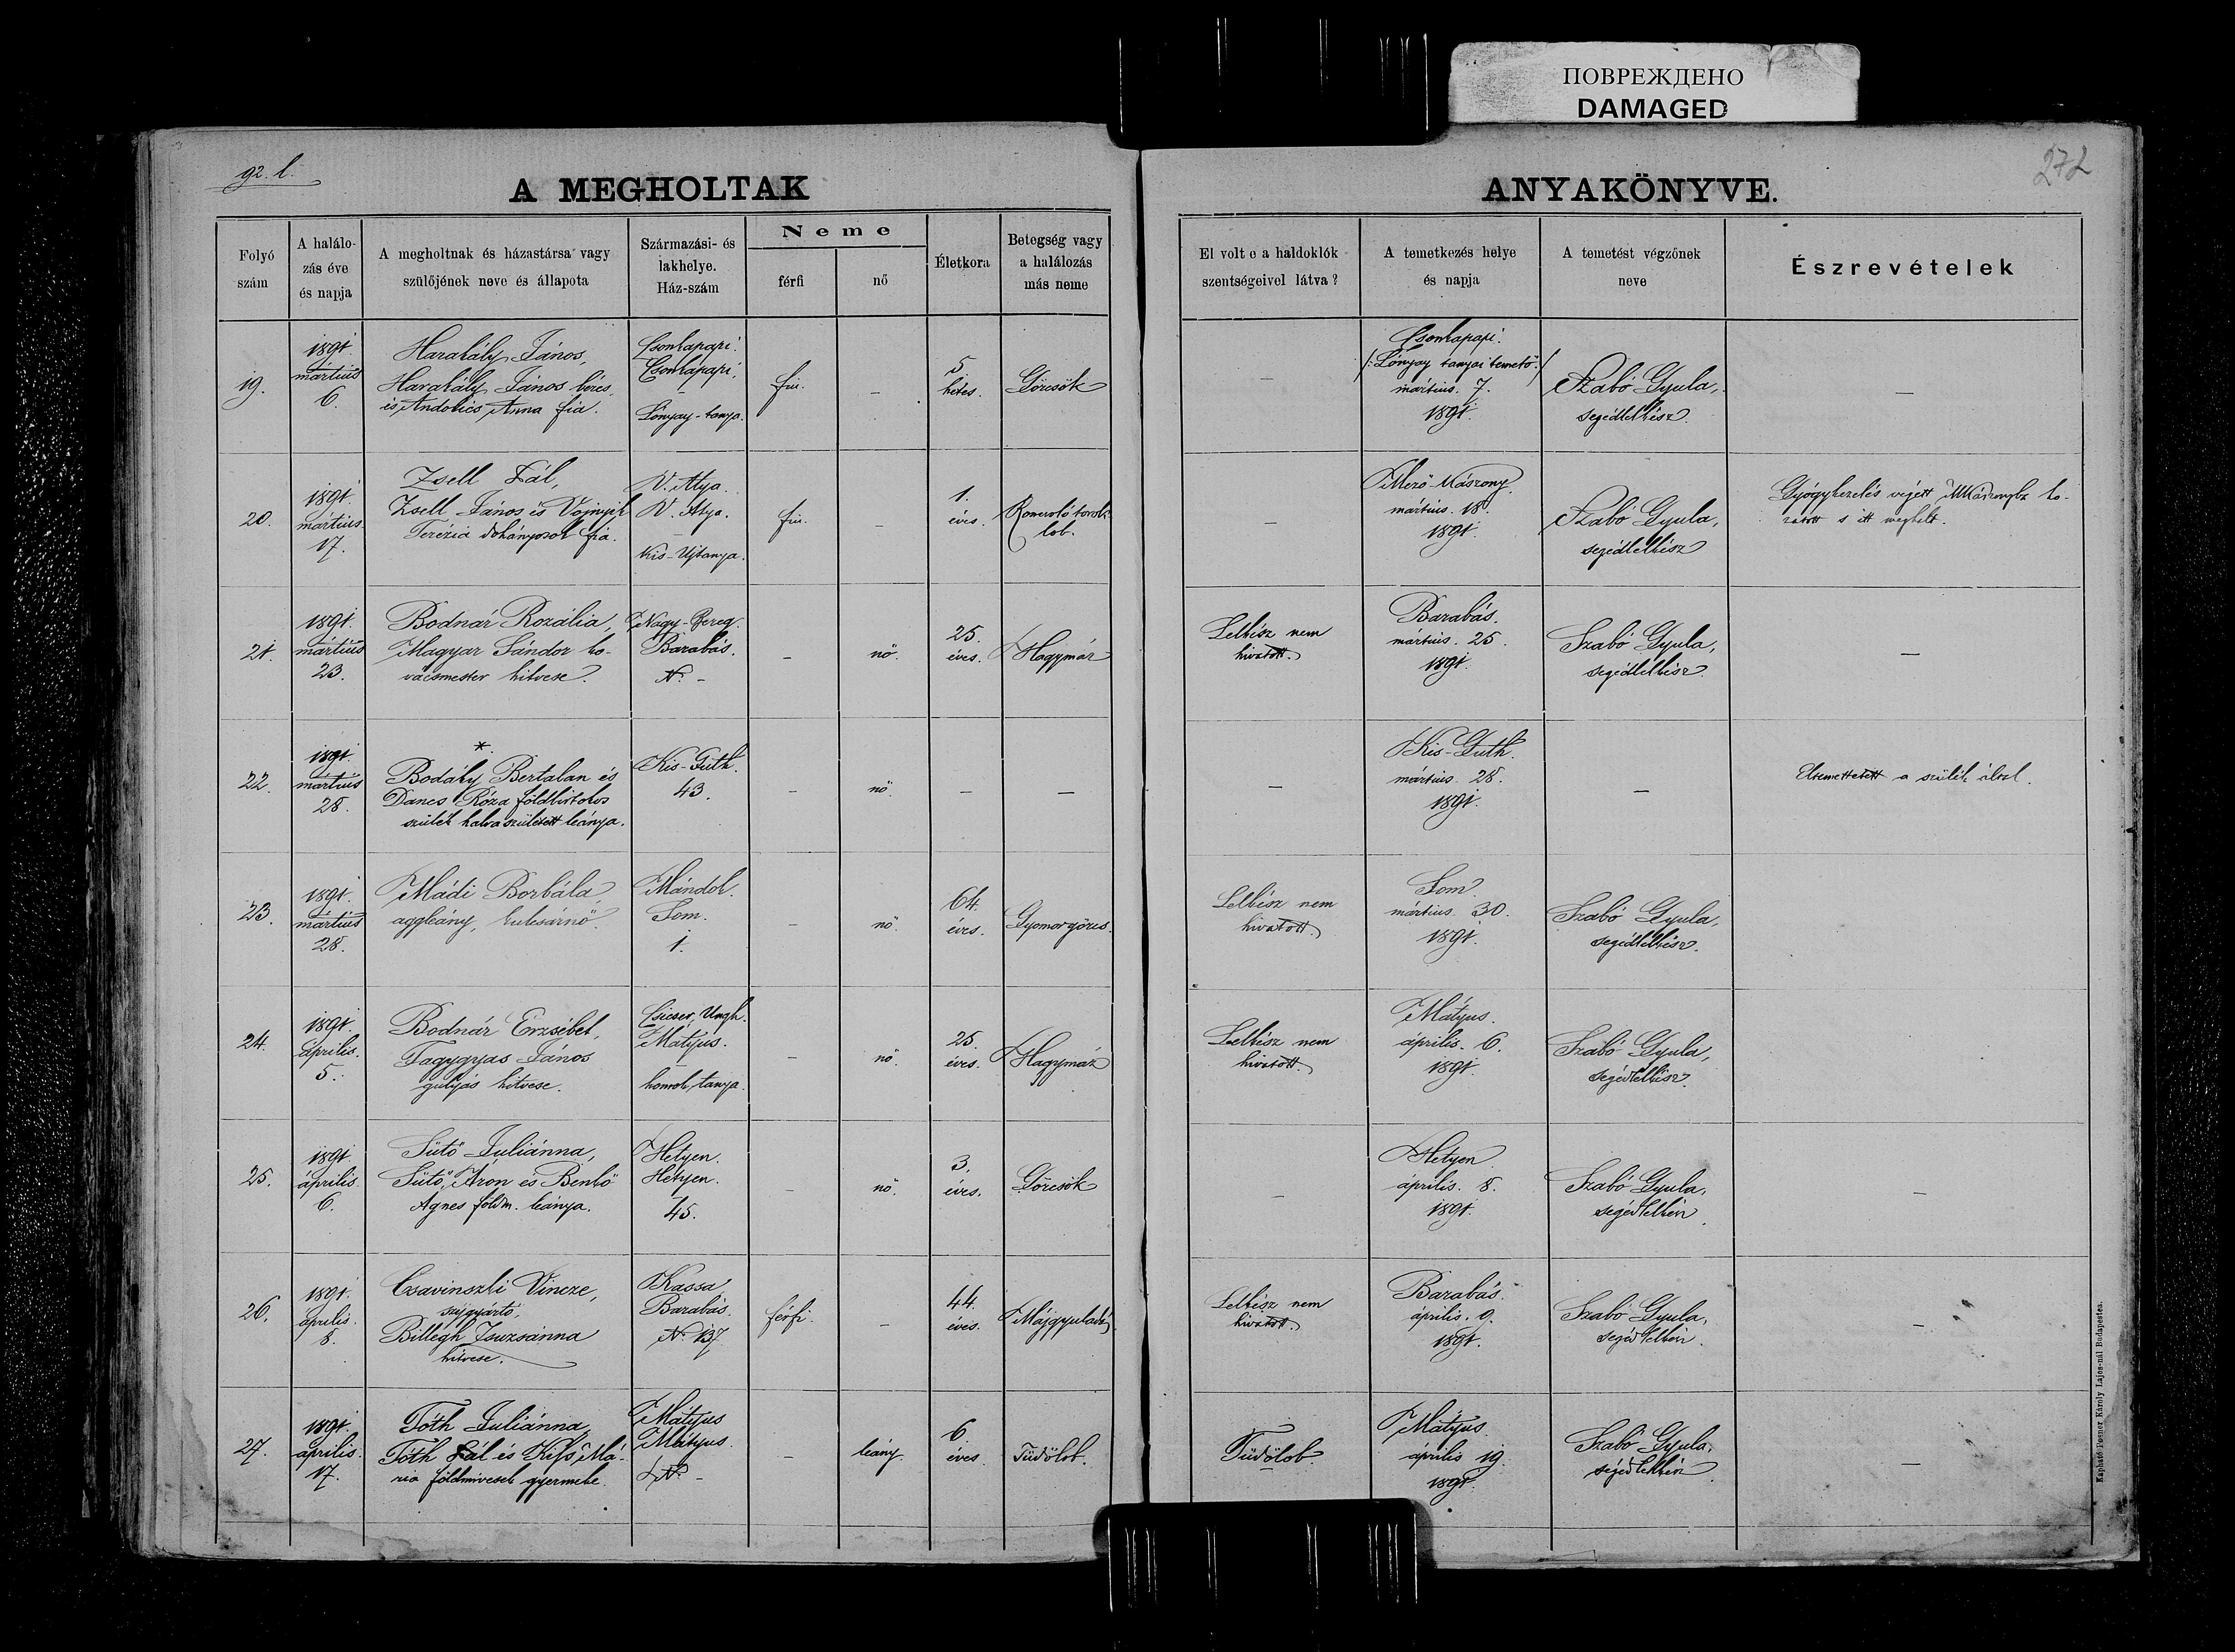 ПОВРЕЖДЕНО
DAMAGED
92. l.
272
A MEGHOLTAK
ANYAKÖNYVE.
Folyó szám
A halálo-
zás éve
és napja
A megholtnak és házastársa vagy
szülőjének neve és állapota
Származási- és
lakhelye.
Ház-szám
Neme
férfi
nő
Életkora
Betegség vagy
a halálozás
más neme
El volt e a haldoklók
szentségeivel látva?
A temetkezés helye
és napja
A temetést végzőnek
neve
Észrevételek
19.
1891.
március
6.
Harahály János,
Harahály János béres
és Anna fia.
Csonkapapi.
Csonkapapi,
–
Lónyay-tanya.
fiú.
–
5.
hetes.
Görcsök
–
Csonkapapi.
/: Lónyay tanyai temető :/
március. 7.
1891.
Szabó Gyula,
segédlelkész.
–
20.
1891.
március.
17.
Zsell Pál,
Zsell János és Vojnyik
Terézia dohányosok fia.
V. Atya.
V. Atya.
–
Kis-Ujtanya.
fiú.
–
1.
éves.
Roncsoló torok-
lob.
–
Mező-Kászony.
március. 18.
1891.
Szabó Gyula,
segédlelkész
Gyógykezelés végett MKászonyba ho-
zatott s itt meghalt.
21.
1891.
március
23.
Bodnár Rozália,
Magyar Sándor ko-
vácsmester hitvese.
Nagy-Bereg.
Barabás.
N. –
–
nő.
25.
éves.
Hagymáz
Lelkész nem
hivatott.
Barabás.
március. 25.
1891.
Szabó Gyula,
segédlelkész.
–
22.
1891.
március
28.
*
Bodáky Bertalan és
Dancs Róza földbirtokos
szülék halva született leánya.
Kis-Guth.
43.
–
nő.
–
–
–
Kis-Guth.
március. 28.
1891.
–
Eltemettetett a szülék által.
23.
1891.
március
28.
Mádi Borbála,
aggleány, kulcsárnő.
Mándok.
Som.
1.
–
nő.
64.
éves.
Gyomorgörcs.
Lelkész nem
hivatott.
Som.
március. 30.
1891.
Szabó Gyula,
segédlelkész.
24.
1891.
április.
5.
Bodnár Erzsébet,
Faggyas János
gulyás hitvese.
Csicser, Ungh.
Mátyus.
–
homok tanya.
–
nő.
25.
éves.
Hagymáz
Lelkész nem
hivatott.
Mátyus.
április. 6.
1891.
Szabó Gyula,
segédlelkész.
25.
1891.
április.
6.
Sütő Juliánna,
Sütő Áron és Benkő
Ágnes földm. leánya.
Hetyen.
Hetyen.
45.
–
nő.
3.
éves.
Görcsök
–
Hetyen.
április. 8.
1891.
Szabó Gyula,
segédlelkész
–
26.
1891.
április.
8.
Csavinszki Vincze,
szíjgyártó,
Billegh Zsuzsánna
hitvese.
Kassa
Barabás.
N. 137.
férfi.
–
44.
éves.
Májgyuladás.
Lelkész nem
hivatott.
Barabás.
április. 9.
1891.
Szabó Gyula,
segédlelkész.
–
27.
1891.
április.
17.
Tóth Juliánna,
Tóth Pál és Kiss Má-
ria földmivesek gyermeke.
Mátyus
Mátyus.
N. –
–
leány.
6.
éves.
Tüdőlob.
Tüdőlob.
Mátyus.
április 19.
1891.
Szabó Gyula,
segédlelkész.
–
Kapható Posner Károly Lajos-nál Budapesten.